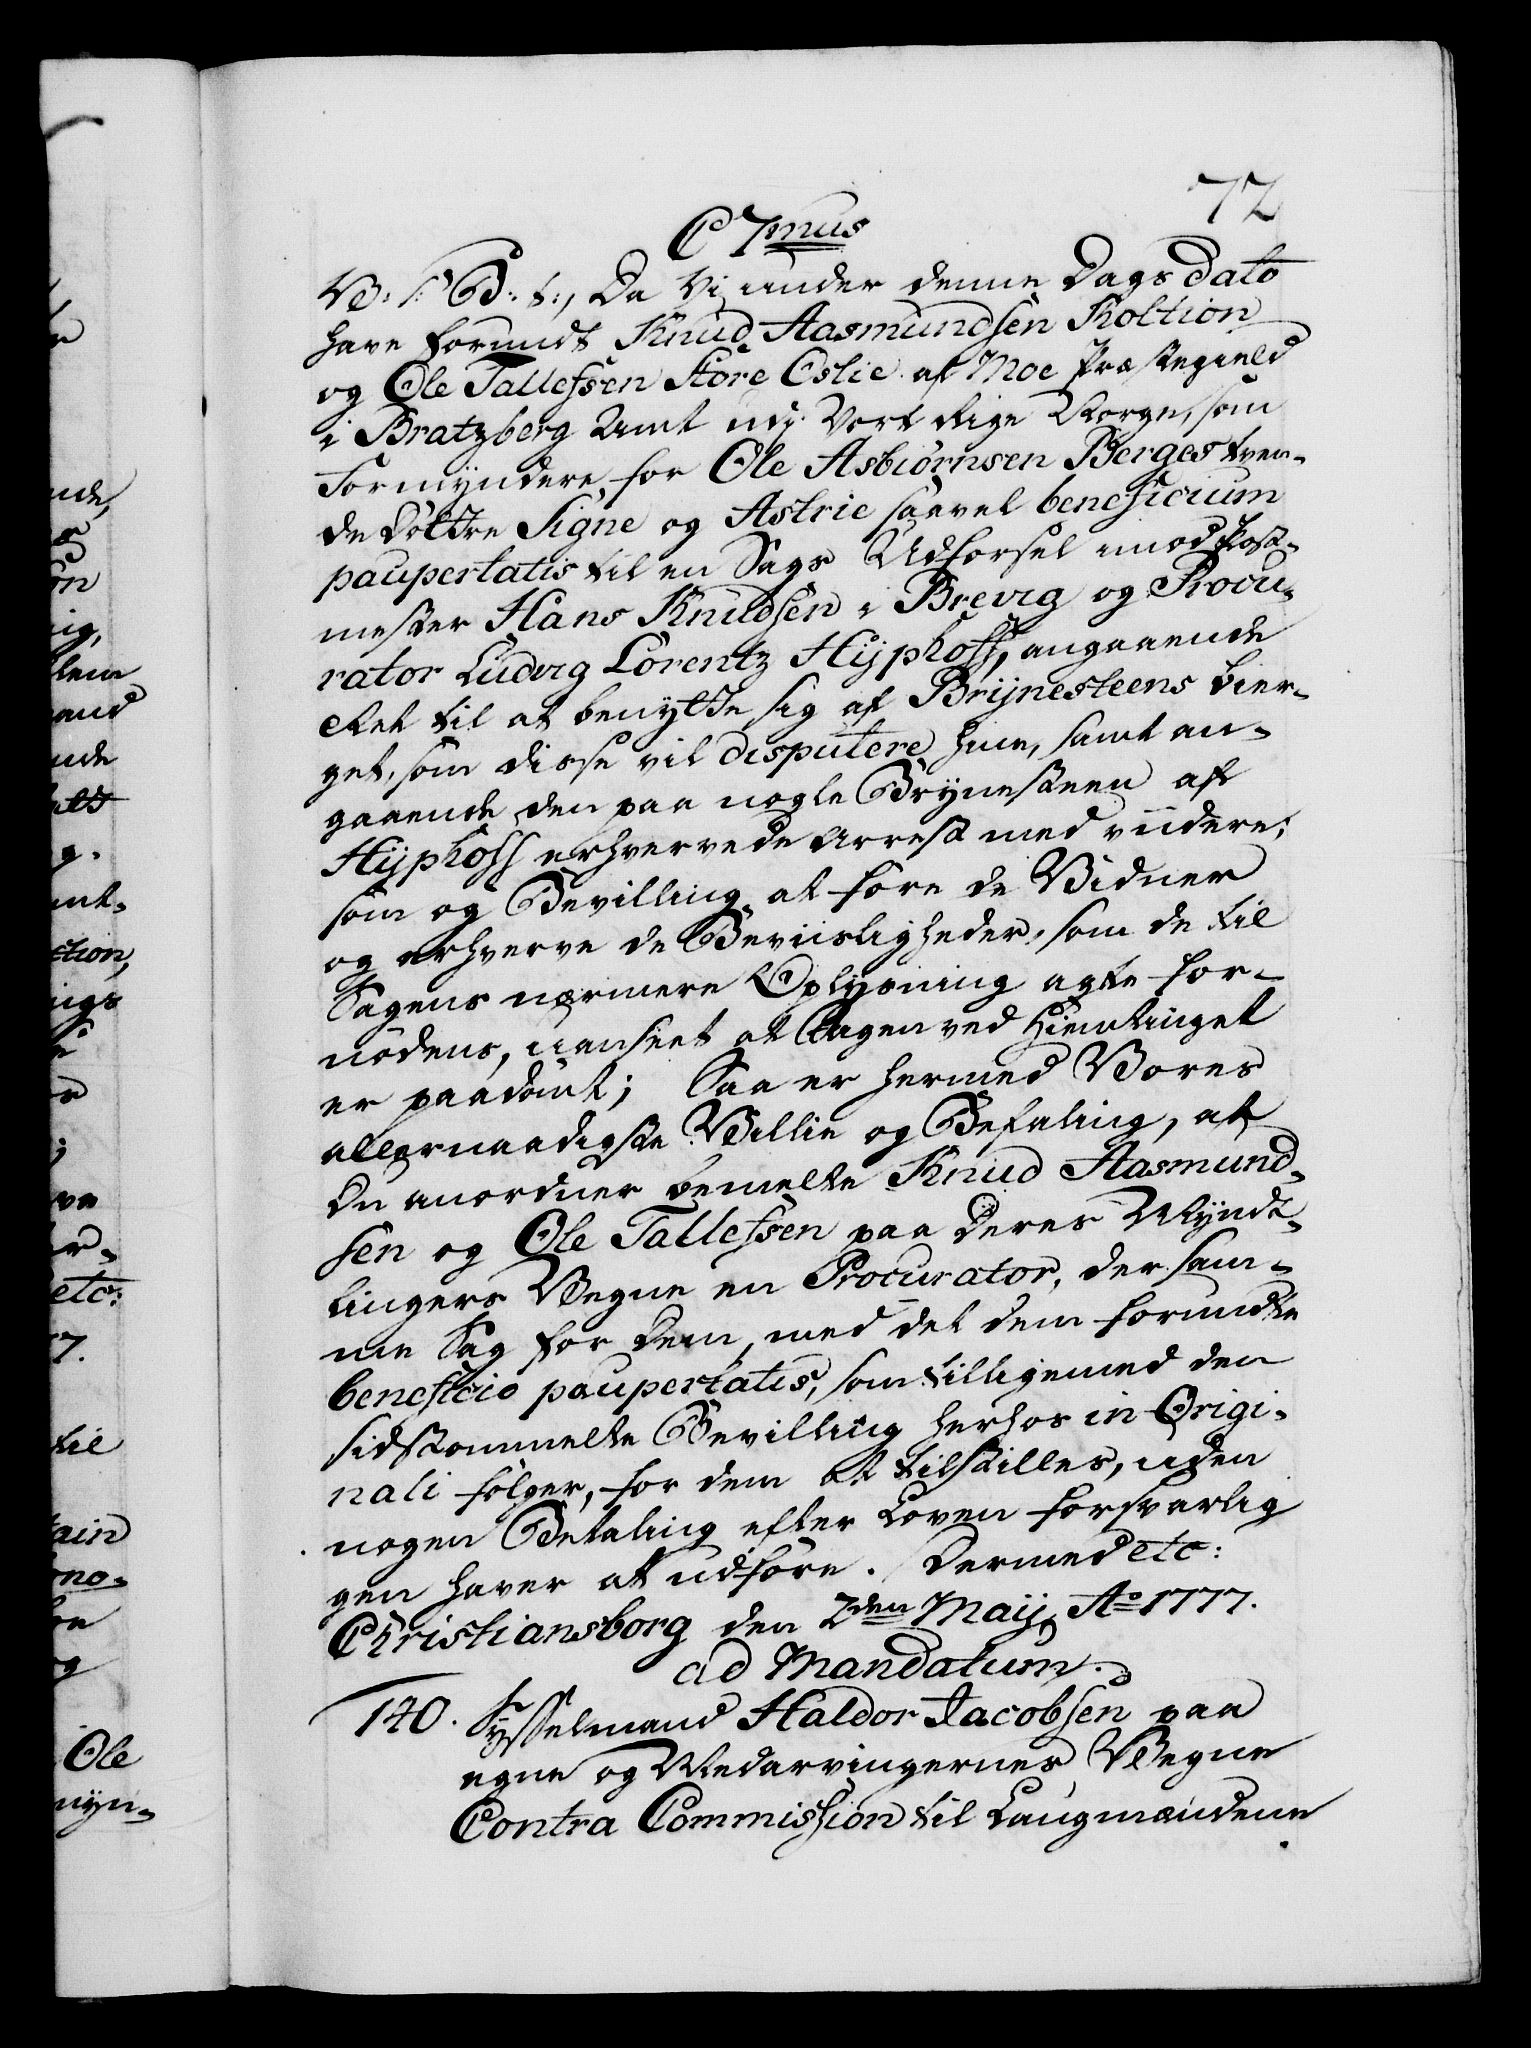 72
C 7mus
V: S: G: T:, Da Vi under denne Dags Dato
have forundt Knud Aasmundsen Koltion
og Ole Tallefsen Store Eslie af Moe Præstegield
i Bratzberg Amt udj Vort Rige Norge, som
Formyndere for Ole Asbiørnsen Berges tven-
de Døttre Signe og Astrie saavel beneficium
paupertatis til en Sags Udførsel imod Post-
mester Hans Knudsen i Brevig og Procu-
rator Ludvig Lorentz Hyphoff, angaaende
Ret til at benytte sig af Brynesteens Bier-
get, som disse vil disputere hine, samt an-
gaaende den paa nogle Brynesteen af
Hyphoff erhvervede Arrest med viidere;
som og Bevilling at føre de Vidner
og erhverve de Beviisligheder, som de til
Sagens nærmere Oplysning agte for-
nødens, uanseet at Sagen ved Hiemtinget
er paadømt; Saa er hermed Vores
allernaadigste Villie og Befaling, at
Du anordner bemelte Knud Aasmund-
sen og Ole Tallefsen paa Deres Myndt-
lingers Vegne en Procurator, der sam-
me Sag for Dem, med det dem forundte
beneficio paupertatis, som tilligemed den
sidstommelte Bevilling herhos in Origi-
nali følger, for dem at tilstilles, uden
nogen Betaling efter Loven forsvarlig
gen haver at udføre. Dermed etc:
Christiansborg den 2den Maij Ao 1777.
ad Mandatum.
140. Sysselmand Haldor Jacobsen paa
egne og Medarvingernes Vegne
Contra Commission til Laugmændene